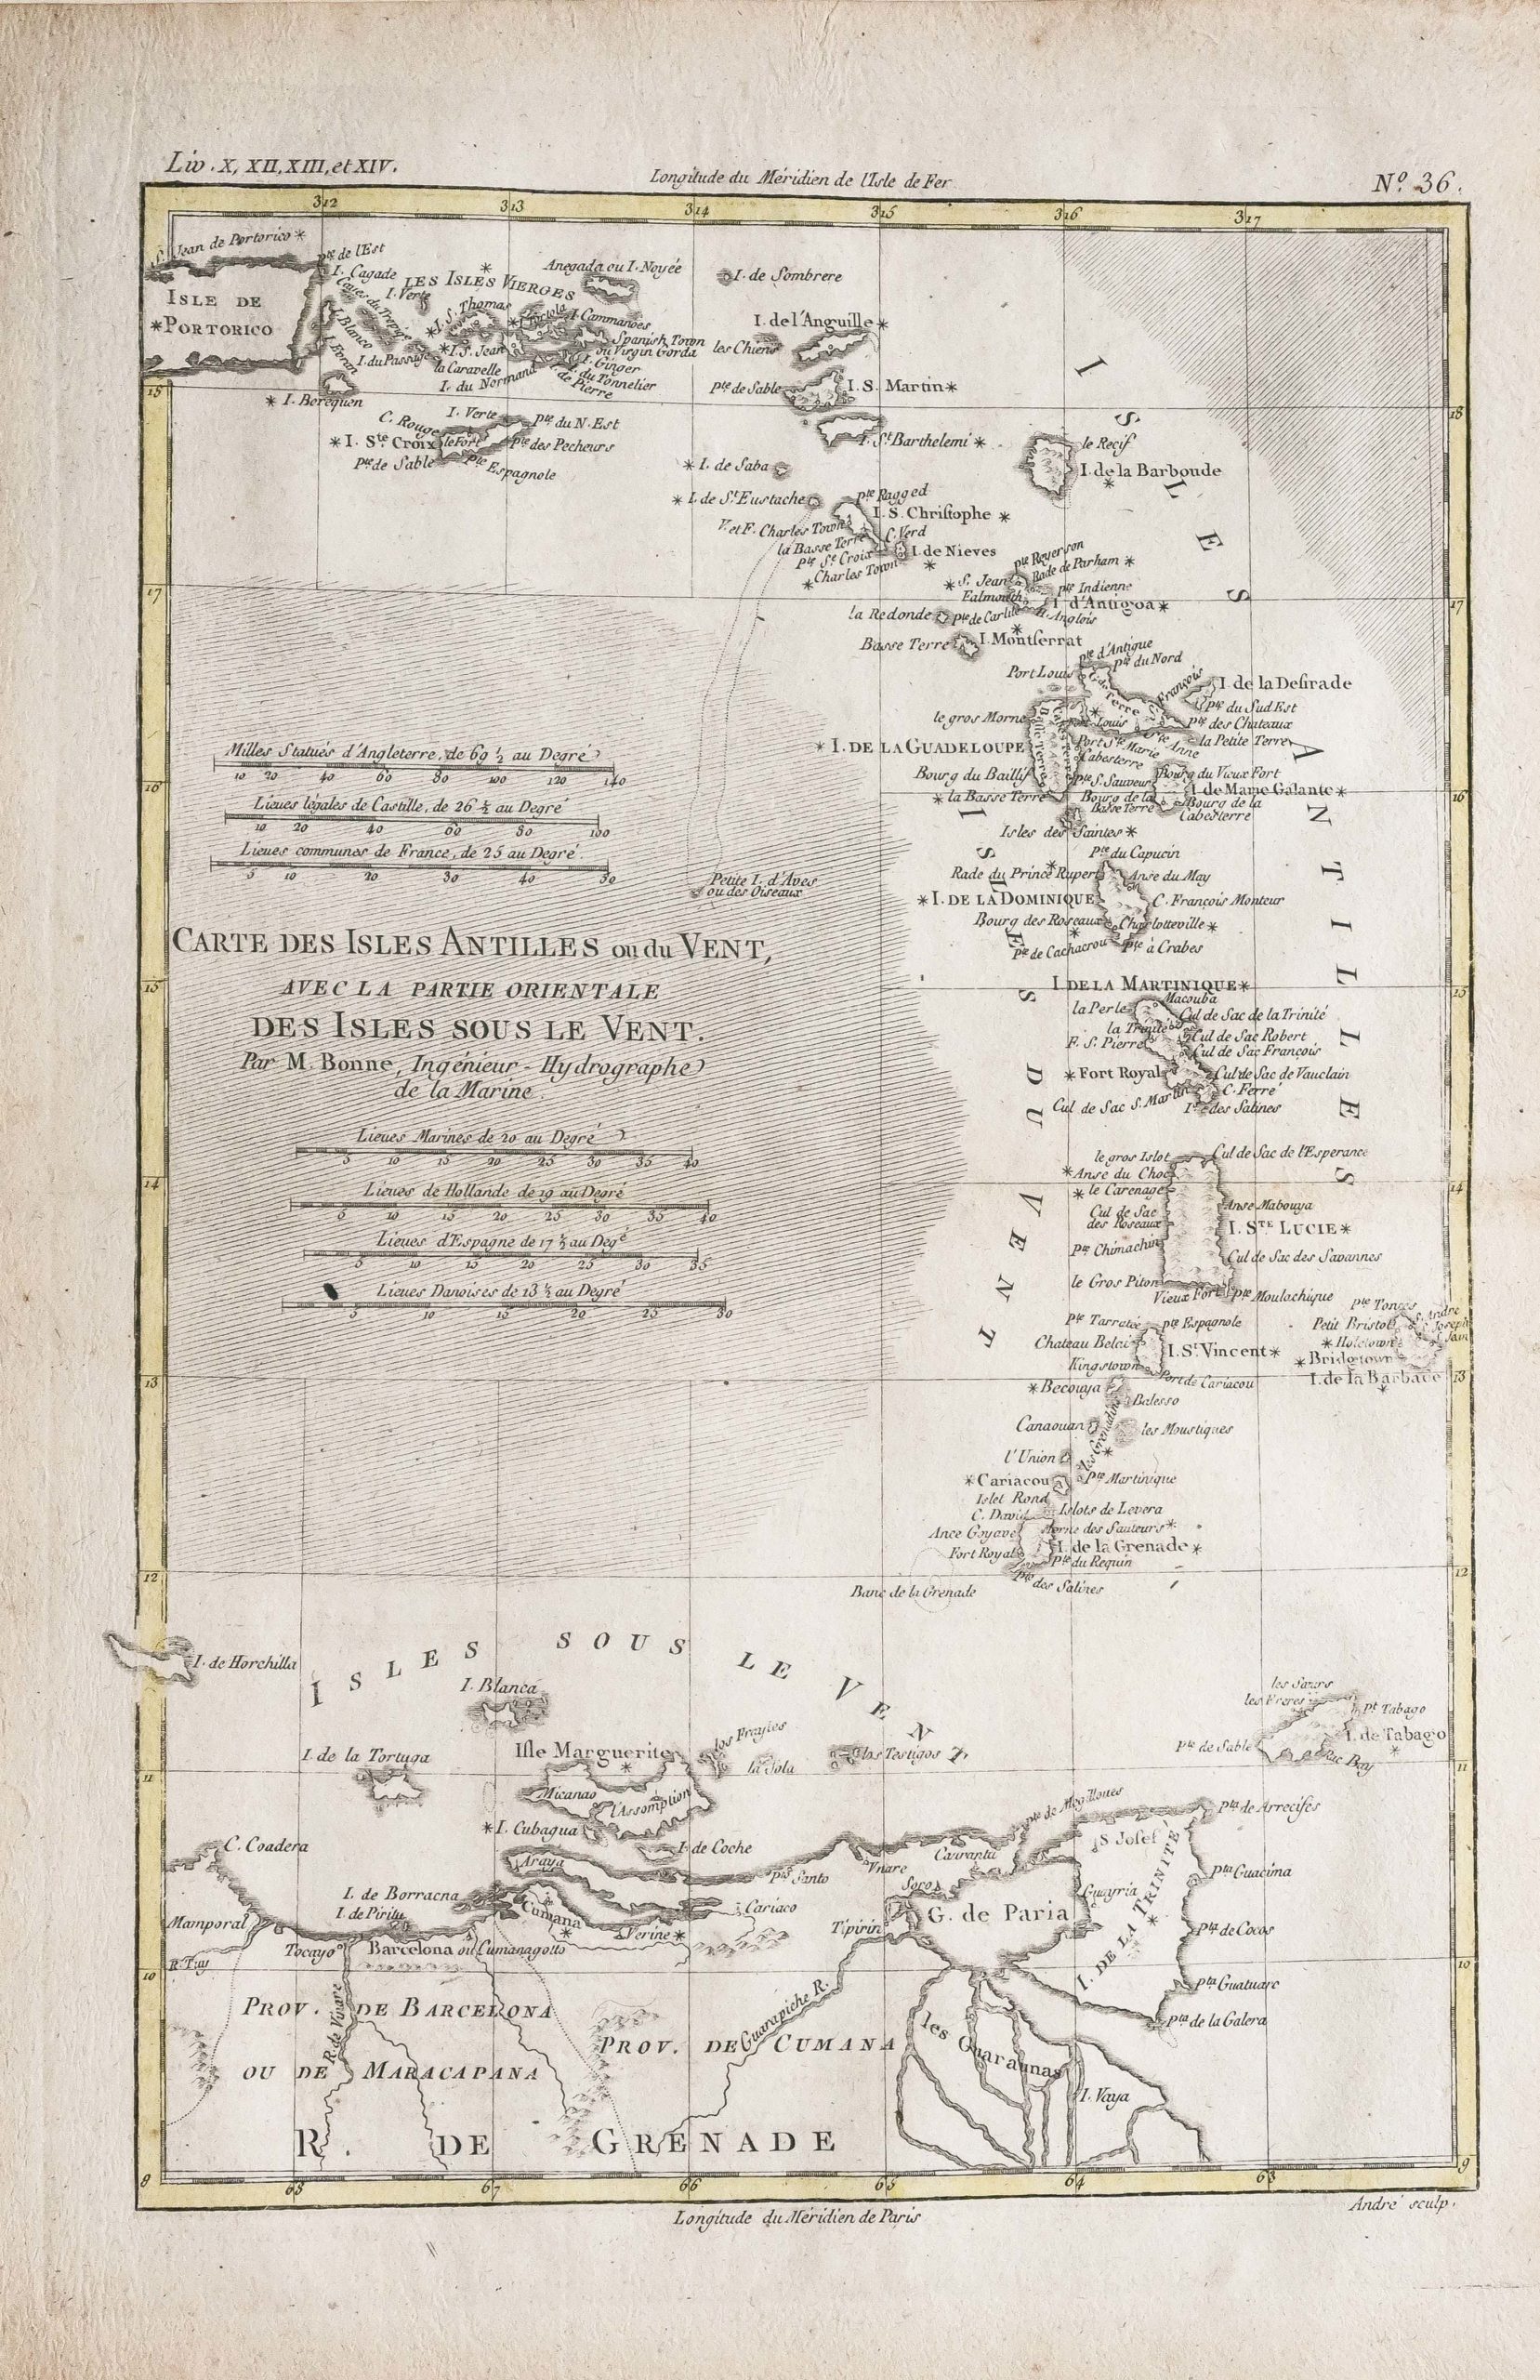 Liv. X, XII, XIII, et XIV.
Longitude du Méridien de l'Isle de Fer
N.º 36.
312 313 314 315 316 317
S. Jean de Portorico
Pte de l'Est
I. Cagade
LES ISLES VIERGES
Anegada ou I. Noyée
I. de Sombrere
ISLE DE PORTORICO
Cayes du Tropique
I. Verte
I. S. Thomas
I. Tortola
I. Commanoes
Spanish Town
ou Virgin Gorda
I. Blanco
I. du Passage
I. S. Jean
la Caravelle
I. du Normand
I. Ginger
I. du Tonnelier
de Pierre
I. de l'Anguille
les Chiens
Pte de Sable
I. S. Martin
18
18
I. Borequen
I. Verte
Pte du N. Est
C. Rouge
I. Ste Croix
le Fort
Pte des Pecheurs
Pte de Sable
Pte Espagnole
I. St Barthelemi
I. de Saba
le Recif
I. de la Barboude
I. de St Eustache
Pte Ragged
I. S. Christophe
V. et F. Charles Town
la Basse Terre
C. Verd
Pte Se Croix
I. de Nieves
Charles Town
S. Jean
Rade de Parham
Falmouth
Pte Indienne
I. d'Antigoa
17
17
la Redonde
Pte de Carlile
H. Anglois
Basse Terre
I. Montserrat
Pte d'Antigue
Pte du Nord
Port Louis
Gde Terre
S. François
I. de la Desirade
Pte du Sud Est
le gros Morne
F. Louis
Pte des Chateaux
I. DE LA GUADELOUPE
Port Ste Marie
Ste Anne
la Petite Terre
Cabesterre
Bourg du Baillif
Pte S. Sauveur
Bourg du Vieux Fort
la Basse Terre
I. de Marie Galante
Bourg de la
Basse Terre
Bourg de la
Cabesterre
16
16
Isles des Saintes
ISLES ANTILLES
ISLES DU VENT
Milles Statués d'Angleterre, de 69 ½ au Degré
10 20 40 60 80 100 120 140
Lieues légales de Castille, de 26 ½ au Degré
10 20 40 60 80 100
Lieues communes de France, de 25 au Degré
5 10 20 30 40 50
Petite I. d'Aves
ou des Oiseaux
Pte du Capucin
Rade du Prince Rupert
Anse du May
I. DE LA DOMINIQUE
C. François Monteur
Bourg des Roseaux
Charlotteville
Pte de Cachacrou
Pte à Crabes
CARTE DES ISLES ANTILLES ou du VENT,
AVEC LA PARTIE ORIENTALE
DES ISLES SOUS LE VENT.
Par M. Bonne, Ingénieur-Hydrographe
de la Marine.
15
15
I. DE LA MARTINIQUE
Macouba
la Perle
Cul de Sac de la Trinité
la Trinité
Cul de Sac Robert
F. S. Pierre
Cul de Sac François
Fort Royal
Cul de Sac de Vauclain
C. Ferré
Cul de Sac S. Martin
Ite des Salines
Lieues Marines de 20 au Degré
5 10 15 20 25 30 35 40
Lieues de Hollande de 19 au Degré
5 10 15 20 25 30 35 40
Lieues d'Espagne de 17 ½ au Degé
5 10 15 20 25 30 35
Lieues Danoises de 13 ½ au Degré
5 10 15 20 25 30
le gros Islot
Cul de Sac de l'Esperance
Anse du Choc
14
14
le Carenage
Cul de Sac
des Roseaux
Anse Mabouya
I. STE LUCIE
Pte Chimachin
Cul de Sac des Savannes
le Gros Piton
Vieux Fort
Pte Moulachique
Pte Tarratée
Pte Espagnole
Chateau Belair
I. St Vincent
Kingstown
Port de Cariacou
Petit Bristol
S. André
S. Joseph
Holetown
Bridgetown
I. de la Barbade
13
13
Becouya
Balesso
Canaouan
les Grenadins
les Moustiques
l'Union
Cariacou
Pte Martinique
Islet Rond
C. David
Islots de Levera
Ance Goyave
Morne des Sauteurs
I. de la Grenade
Fort Royal
Pte du Requin
Pte des Salines
Banc de la Grenade
12
12
I. de Horchilla
ISLES SOUS LE VENT
I. Blanca
I. de la Tortuga
Isle Marguerite
los Frayles
la Sola
los Testigos
les Sœurs
les Freres
Pt Tabago
I. de Tabago
Pte de Sable
11
11
Micanao
l'Assomption
I. Cubagua
I. de Coche
C. Coadera
Araya
Pta Santo
Unare
Pte de Megilloues
Pta de Arrecifes
S. Josef
Soro
I. de Borracha
I. de Piritu
Cumana
Cariaco
Verine
Tipirin
G. de Paria
Guayria
I. DE LA TRINITÉ
Pta Guacima
Pta de Cocos
Mamporal
Tocayo
Barcelona ou Cumanagotto
R. Tuy
10
10
Pta Guatuare
Pta de la Galera
PROV. DE BARCELONA
OU DE MARACAPANA
PROV. DE CUMANA
Guarapiche R.
les Guaraunas
I. Vaya
R. DE GRENADE
9
68 67 66 65 64 63
Longitude du Méridien de Paris
André sculp.